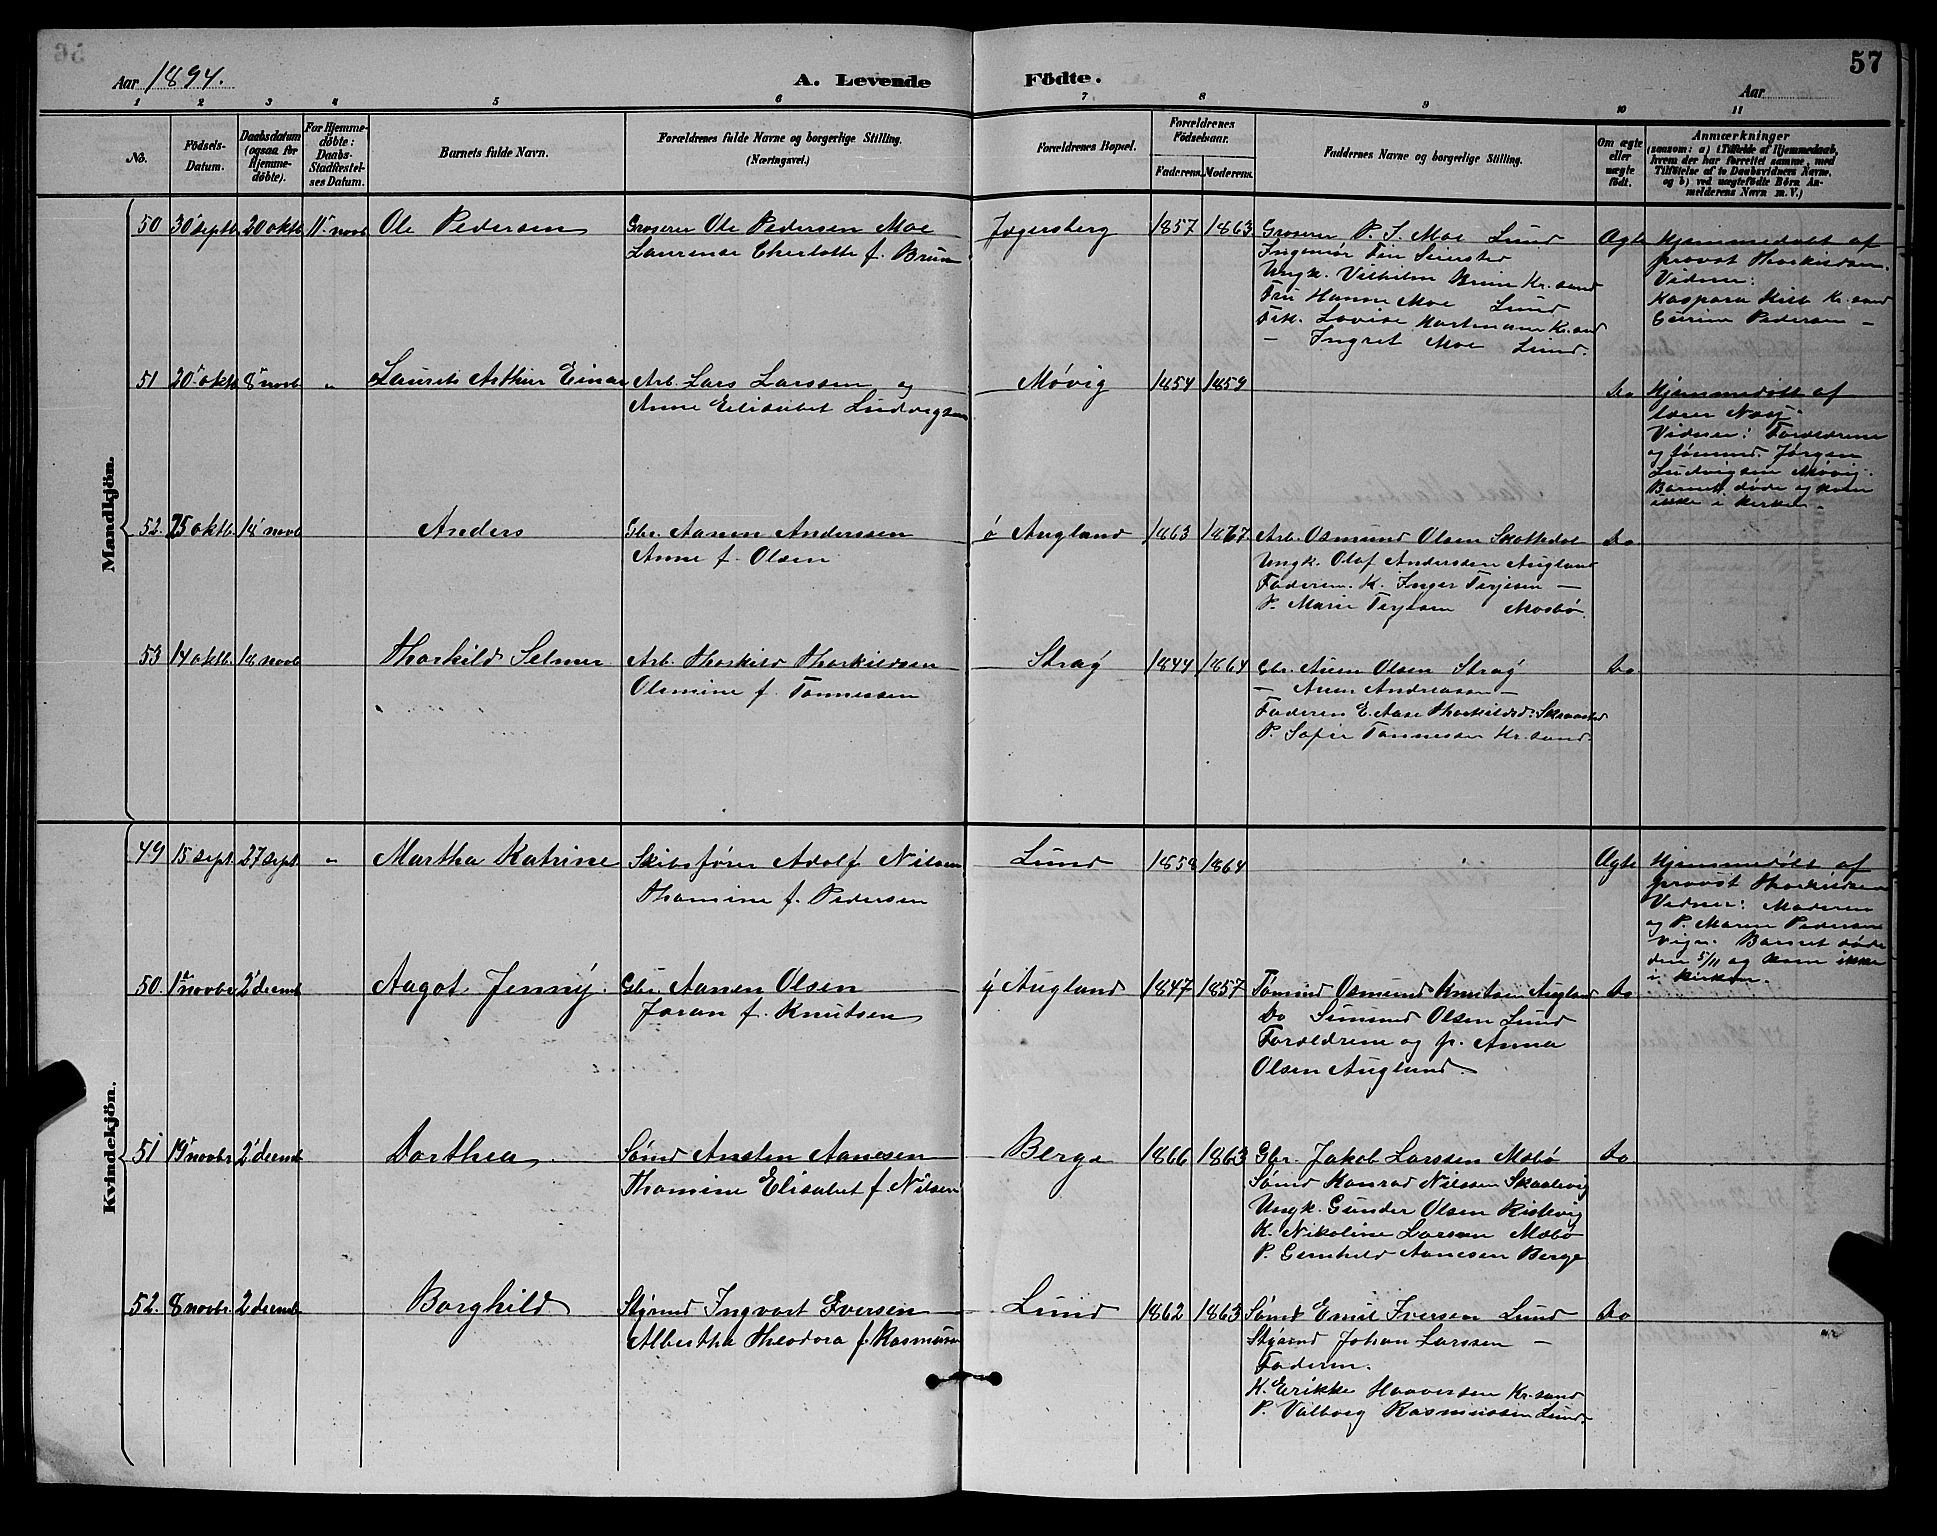 56
Aar 1894.
A. Levende Födte.
57
Aar
1 2 3 4 5 6 7 8 9 10 11
No.
Födsels-Datum.
Daabsdatum (ogsaa for Hjemme-döbte).
For Hjemme-döbte: Daabs-Stadfæstel-ses Datum.
Barnets fulde Navn.
Forældrenes fulde Navne og borgerlige Stilling. (Næringsvei.)
Forældrenes Bopæl.
Forældrenes Födselsaar.
Faderens. Moderens.
Faddernes Navne og borgerlige Stilling.
Om ægte eller uægte födt.
Anmærkninger
(saasom: a) i Tilfælde af Hjemmedaab, hvem der har forrettet samme, med Tilföielse af to Daabsvidners Navne, og b) ved uægtefödte Börn An-melderens Navn m. V.)
Mandkjön.
50 30 septb. 20 oktb 11 novb Ole Pedersen
Groserer Ole Pedersen Moe
Laurense Charlotte f. Bruun
Jægersberg 1857 1863
Groserer P. S. Moe Lund
Ingeniör Finn Seiersted
Ungk. Vilhelm Kr.sand
Fru Hanne Moe Lund
Frk. Lovise Hartmann Kr.sand
– Ingret Moe Lund.
Ægte
Hjemmedøbt af
provst Thorkildsen.
Vidner:
Kaspara Kr.sand
Pedersen –
51 20 oktb 8 novb " Laurits Arthur Einar
Arb. Lars Larssen og
Anne Elisabet Ludvigsen
Møvig 1854 1859
Do
Hjemmedøbt af
lærer
Vidner: Forældrene
og sømand. Jørgen
Ludvigsen Møvig.
Barnet døde og kom
ikke i kirken.
52. 25 oktb. 18 novb Anders
Gbr. Aanen Anderssen
Anne f. Olsen
ø Augland 1863 1867
Arb. Osmund Olsen Skottedal
Ungk. Olaf Anderssen Augland
Faderen. K. Inger Terjesen –
P. Marie Terjesen Mosbø.
Do
53 14 oktb. 18 novb Thorkild Selmer
Arb. Thorkild Thorkildsen
Osmine f. Tønnessen
Stray 1844 1864
Gbr. Auen Olsen Stray
– Auen Andreasen –
Faderen E. Aase Thorkildsd.
P. Sofie Tønnessen Kr.sand.
Do
Kvindekjön.
49 15 sept. 27 sept. " Martha Katrine
Skibsfører Adolf Nilsen
Thomine f. Pedersen
Lund 1858 1864
Ægte
Hjemmedøbt af
provst Thorkildsen
Vidner: Moderen
og P. Maren Pedersen
Vige. Barnet døde
den 5/11 og kom ikke
i kirken.
50. 1 novbr 2 decmb Aagot Jenny.
Gbr. Aanen Olsen
Joran f. Knutsen
y Augland 1847 1857
Tømmd Osmund Knutsen Augland
Do Simund Olsen Lund
Forældrene og p. Anna
Olsen Augland.
Do
51 19 novbr. 2 decmb Dorthea
Sømd Ansten Aanesen
Thomine Elisabet f. Nilsen
Berge 1866 1863
Gbr. Jakob Larssen Mæbø
Sømd Konrad Nilssen Skaalevig
Ungk. Gunder Olsen Kistevig
K. Nikoline Larsen Mæbø
P. Gunhild Aanesen Berge
Do
52. 8 novbr. 2 decmb Borghild
Styrmd Ingvart Iversen
Albertha Theodora f. Rasmusen
Lund 1862 1863
Sømd Emil Iversen Lund
Styrmd Johan Larssen –
Faderen.
K. Erikke Haaversen Kr.sand
P. Valborg Rasmussen Lund.
Do